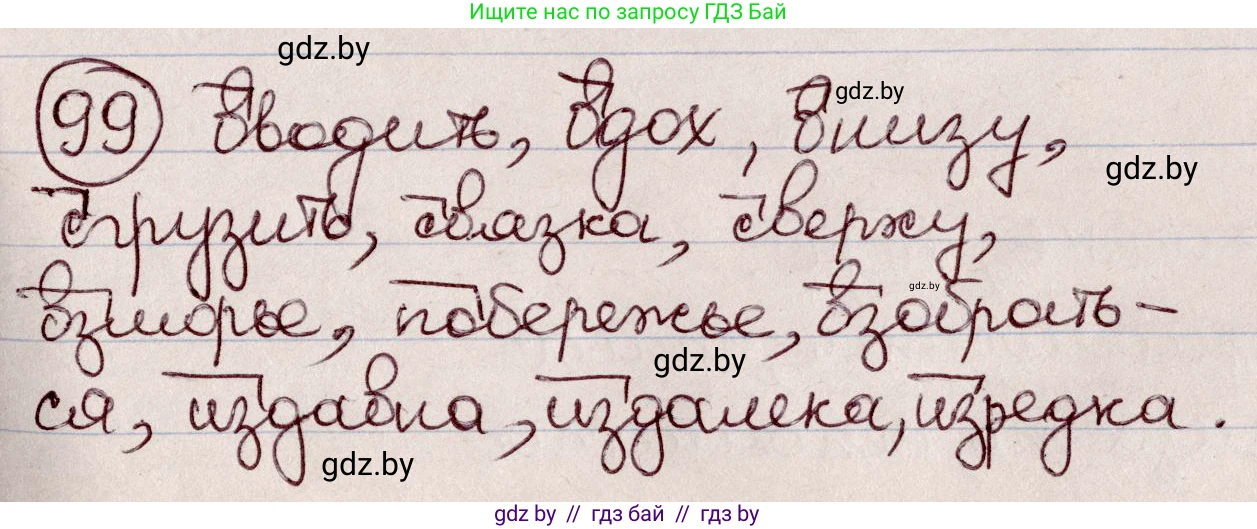 Ищите нас по запросу ГДЗ Бай
gdz.by
99 Вводить, вдох, внизу,
gdz.by
gdz.by
сгрузить, связка, сверху,
взморье, побережье, взобрать-
gdz.by
gdz.by
ся, издавна, издалека, изредка.
gdz.by
gdz.by // гдз бай // гдз by